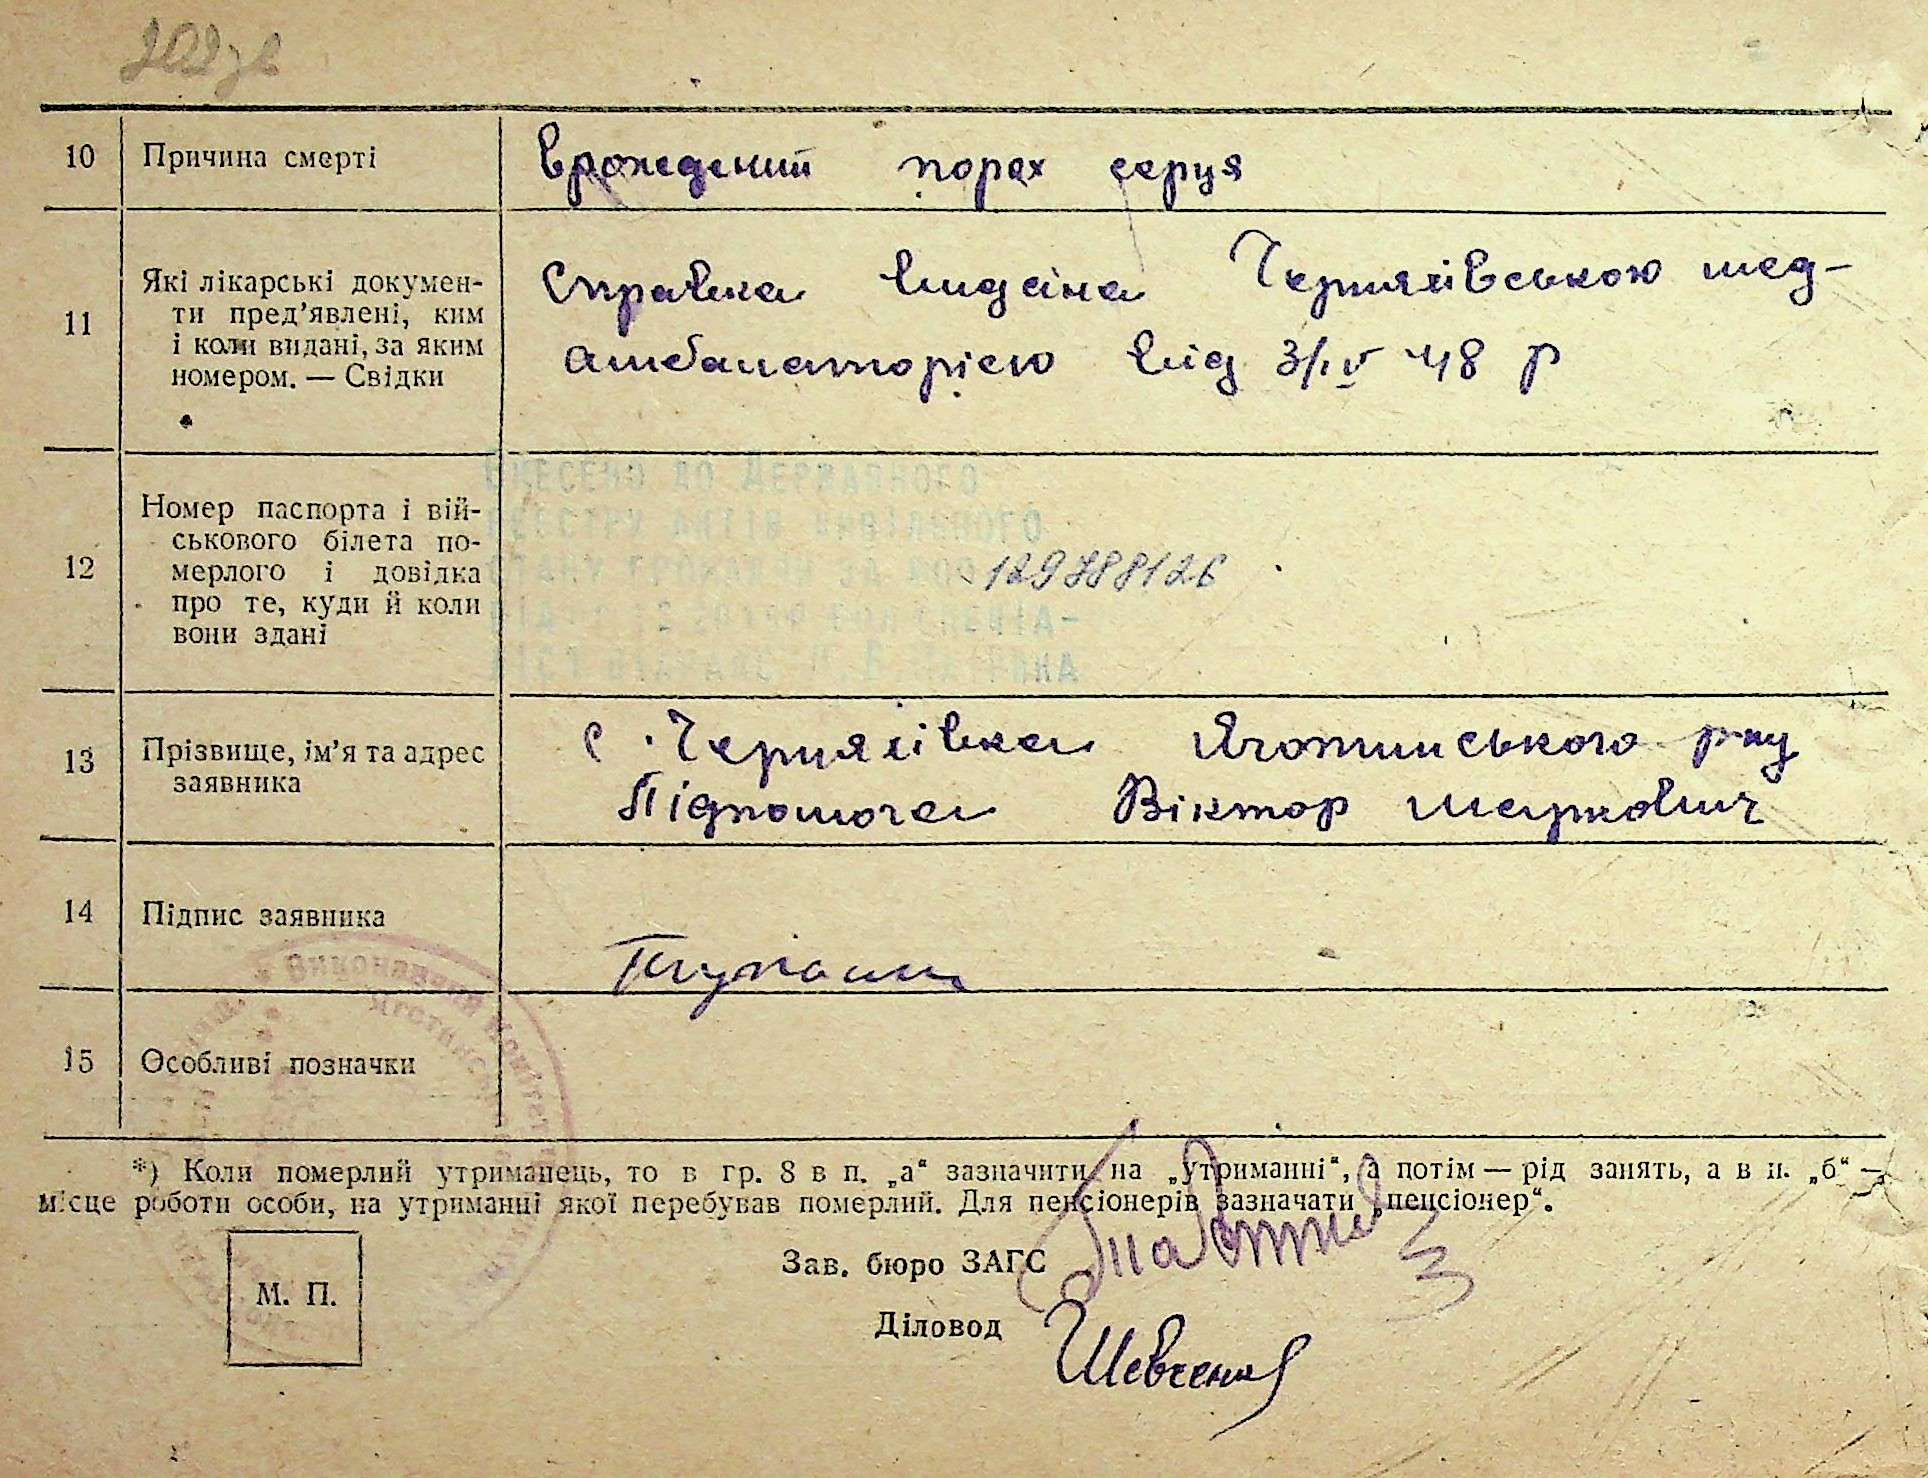 202 зв
10 Причина смерті врождений порок серця
11 Які лікарські докумен-
ти пред’явлені, ким
і коли видані, за яким
номером. — Свідки
Справка видана Черняхівською мед-
амбалаторією від 3/IV 48 р
12 Номер паспорта і вій-
ськового білета по-
мерлого і довідка
про те, куди й коли
вони здані
Внесено до Державного
реєстру актів цивільного
стану громадян за №
129788126
13 Прізвище, ім’я та адрес
заявника
с. Черняхівка Яготинського р-ну
Підпомога Віктор Маркович
14 Підпис заявника
15 Особливі позначки
Виконавчий Комітет
*) Коли померлий утриманець, то в гр. 8 в п. „а“ зазначити на „утриманні“, а потім — рід занять, а в п. „б“ —
місце роботи особи, на утриманні якої перебував померлий. Для пенсіонерів зазначати „пенсіонер“.
М. П.
Зав. бюро ЗАГС
Діловод Шевченко